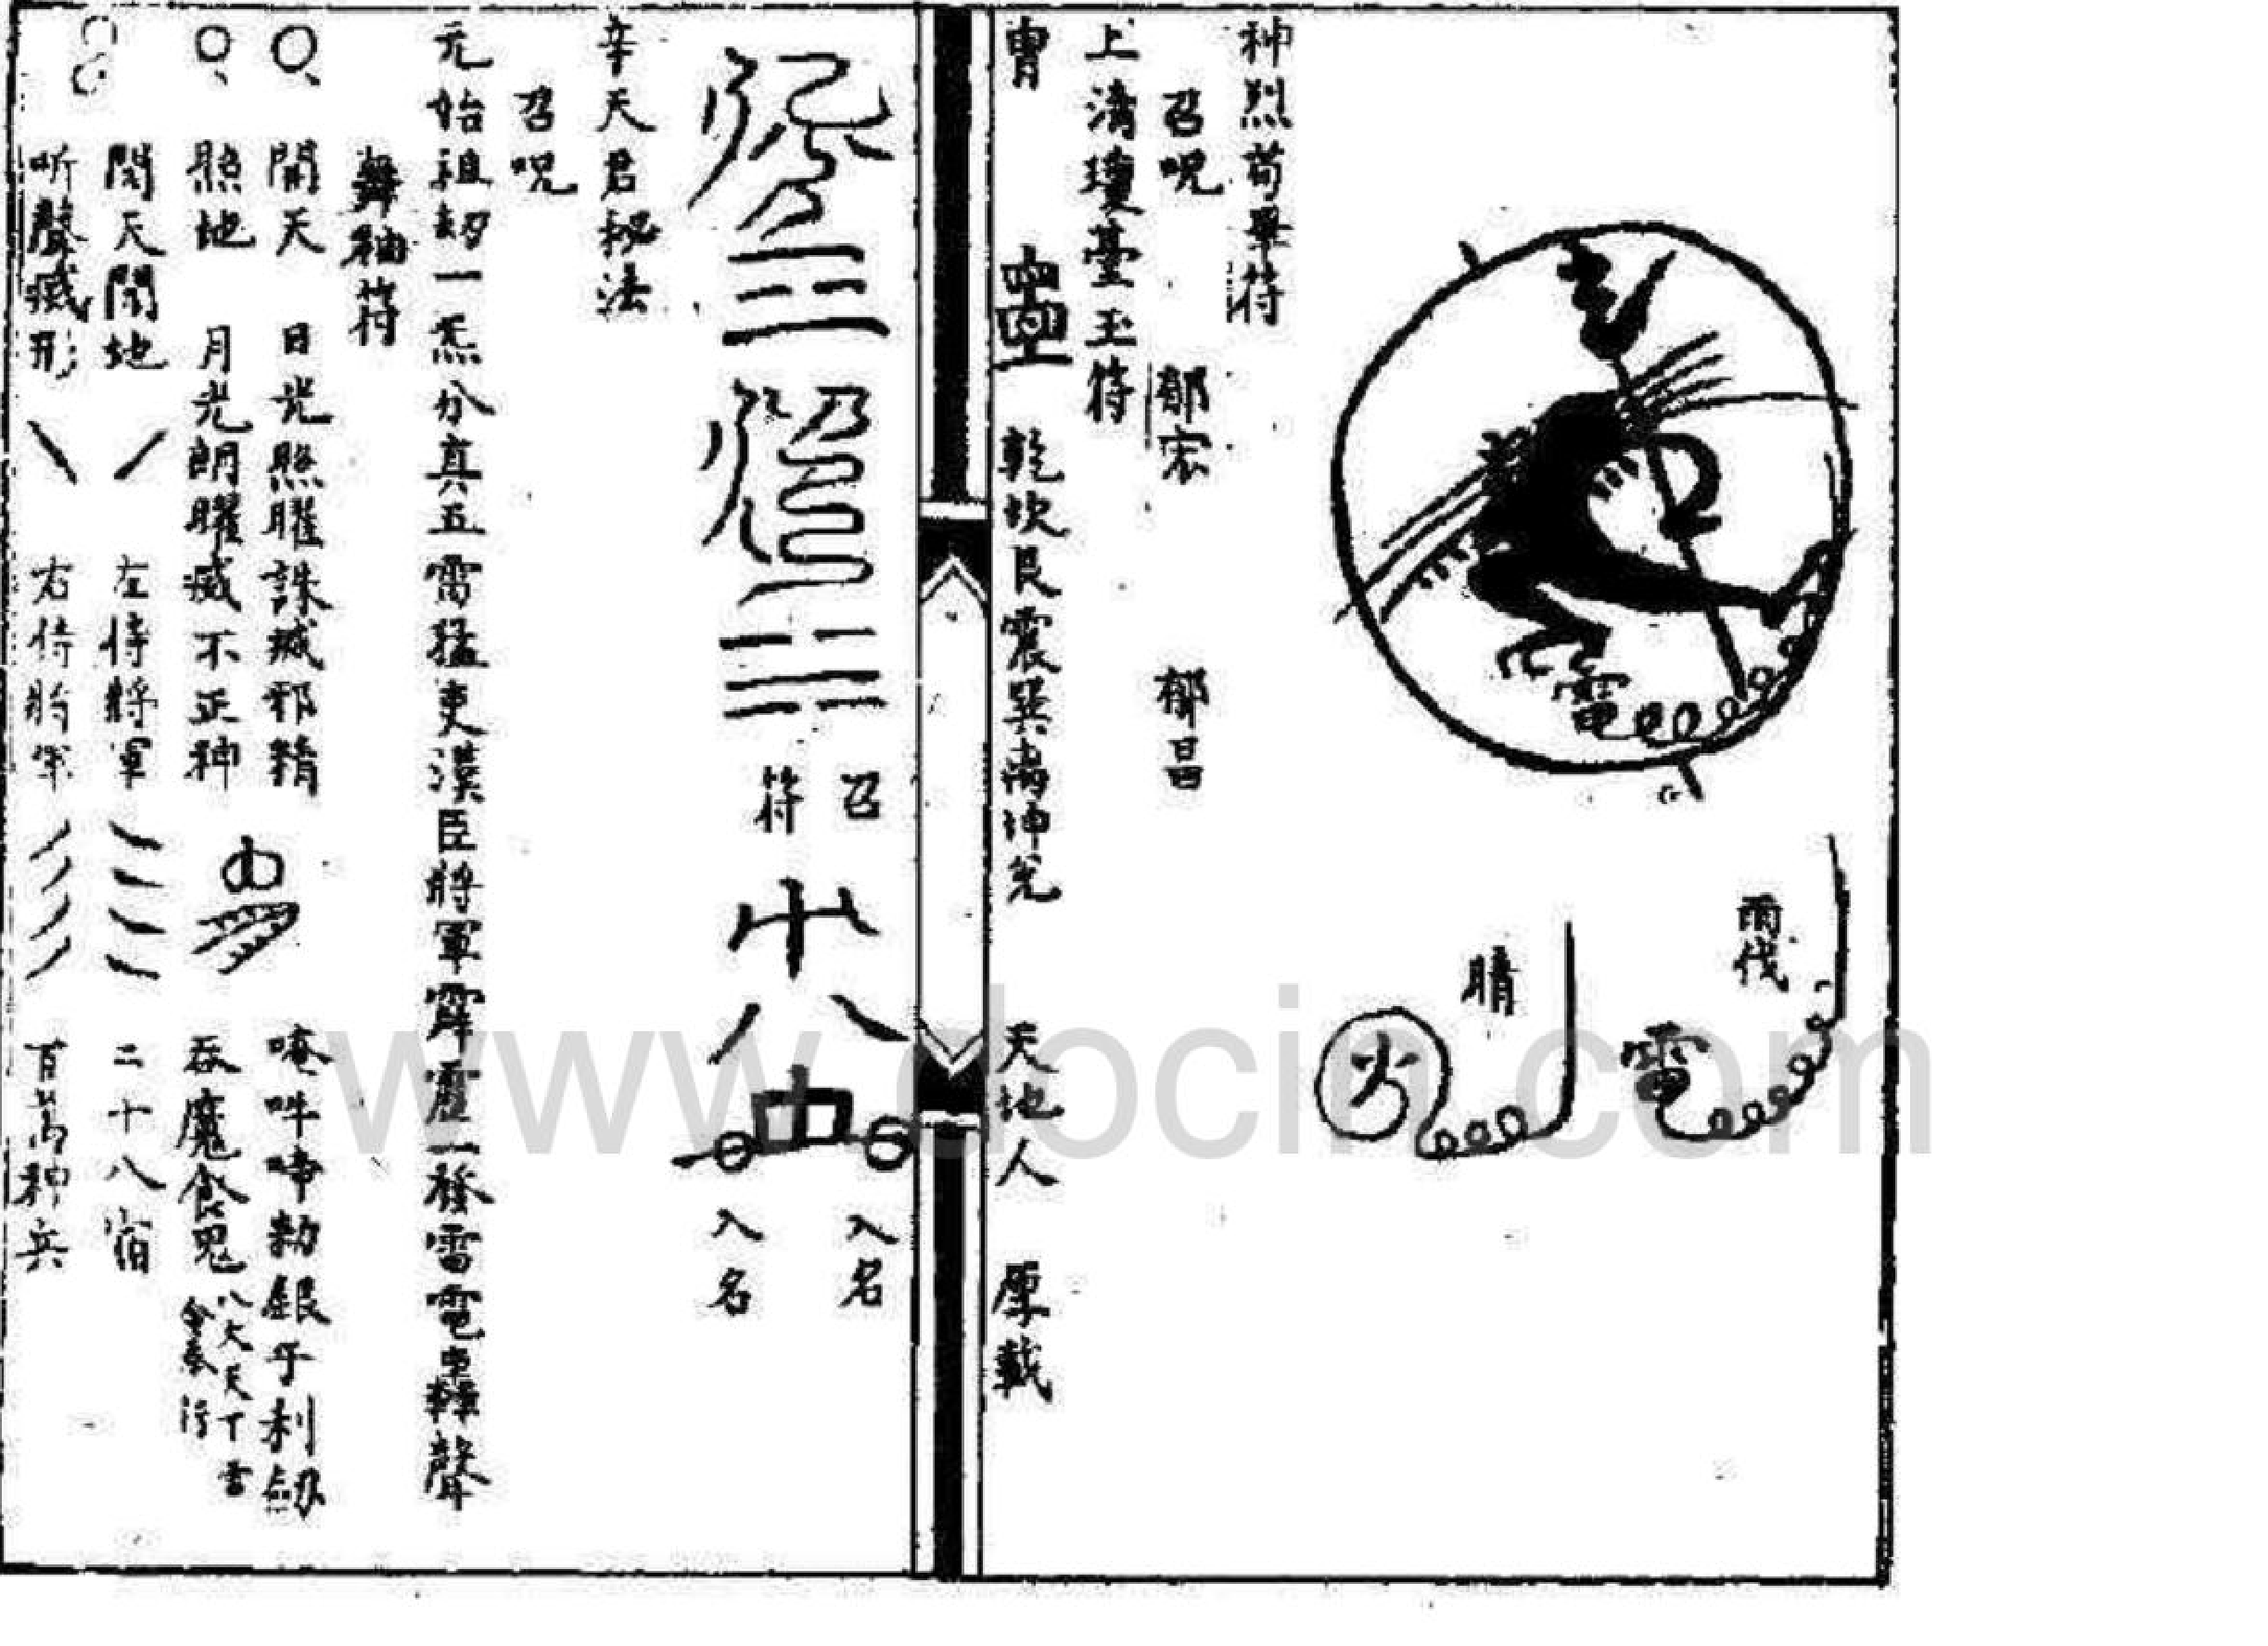 電
雨伐
電
晴
火
神烈苟畢符
召咒 郁宏 郁昌
上清瓊臺玉符
乾坎艮震巽离坤兌 天地人 厚載
召
符
入名
入名
辛天君秘法
召咒
元始祖劫一炁分真五雷猛吏漢臣將軍霹靂一發雷電轟聲
舞袖符
開天 日光照曜誅滅邪精 唵吽啼勅銀牙利劒
照地 月光朗曜威不正神 吞魔食鬼 八大天丁雷
令奉行
開天闢地 左侍將軍 二十八宿
听聲藏形 右侍將軍 百萬神兵
www.docin.com